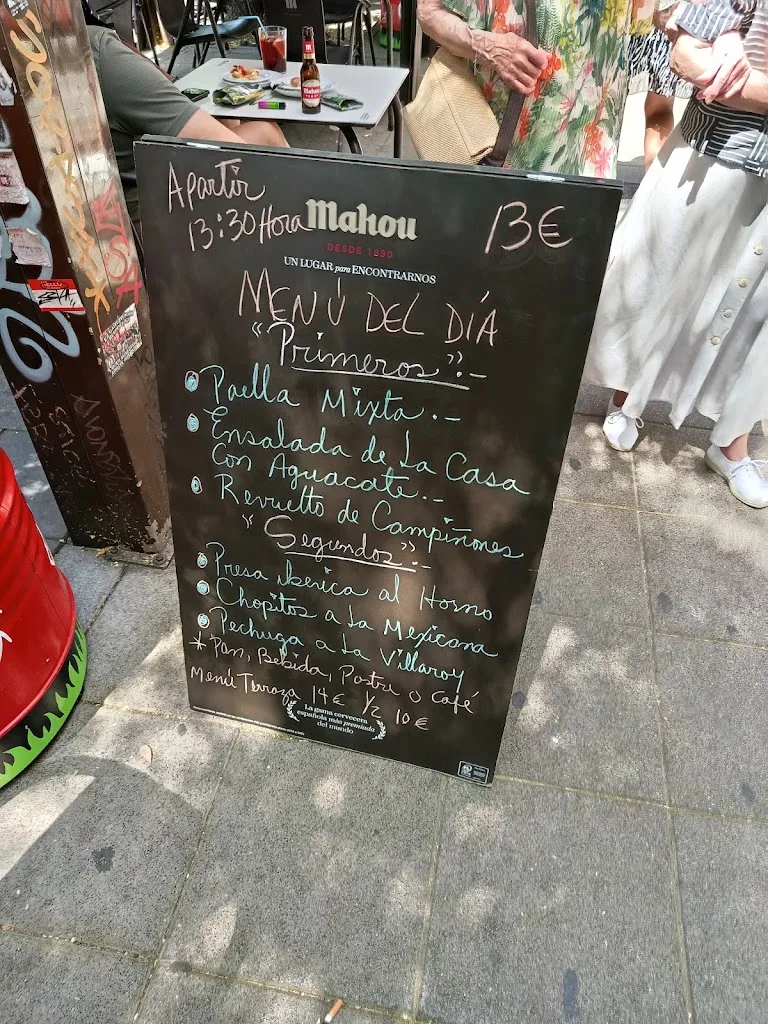 Apartir
13:30 Hora
Mahou
DESDE 1890
UN LUGAR para ENCONTRARNOS
13€
MENÚ DEL DÍA
"Primeros":-
Paella Mixta.-
Ensalada de La Casa
Con Aguacate.-
Revuelto de Campiñones
"Segundos":-
Presa iberica al Horno
Chopitos a La Mexicana
Pechuga a La Villaroy
* Pan, Bebida, Postre o Café
Menú Terraza 14€ 1/2 10€
La gama cervecera
española más premiada
del mundo
Mahou